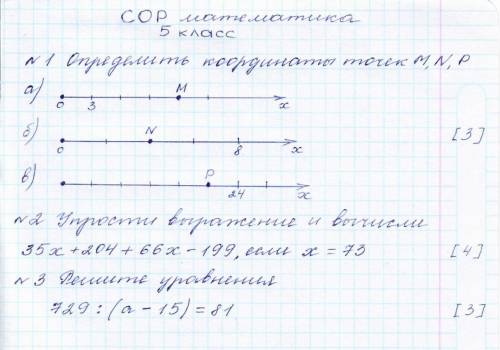 СОР математика
5 класс
№1 Определить координаты точек M, N, P
а) 0 3 M x
б) 0 N 8 x [3]
в) P 24 x
№2 Упрости выражение и вычисли
35x+204+66x-199, если x=73 [4]
№3 Решите уравнения
729:(a-15)=81 [3]